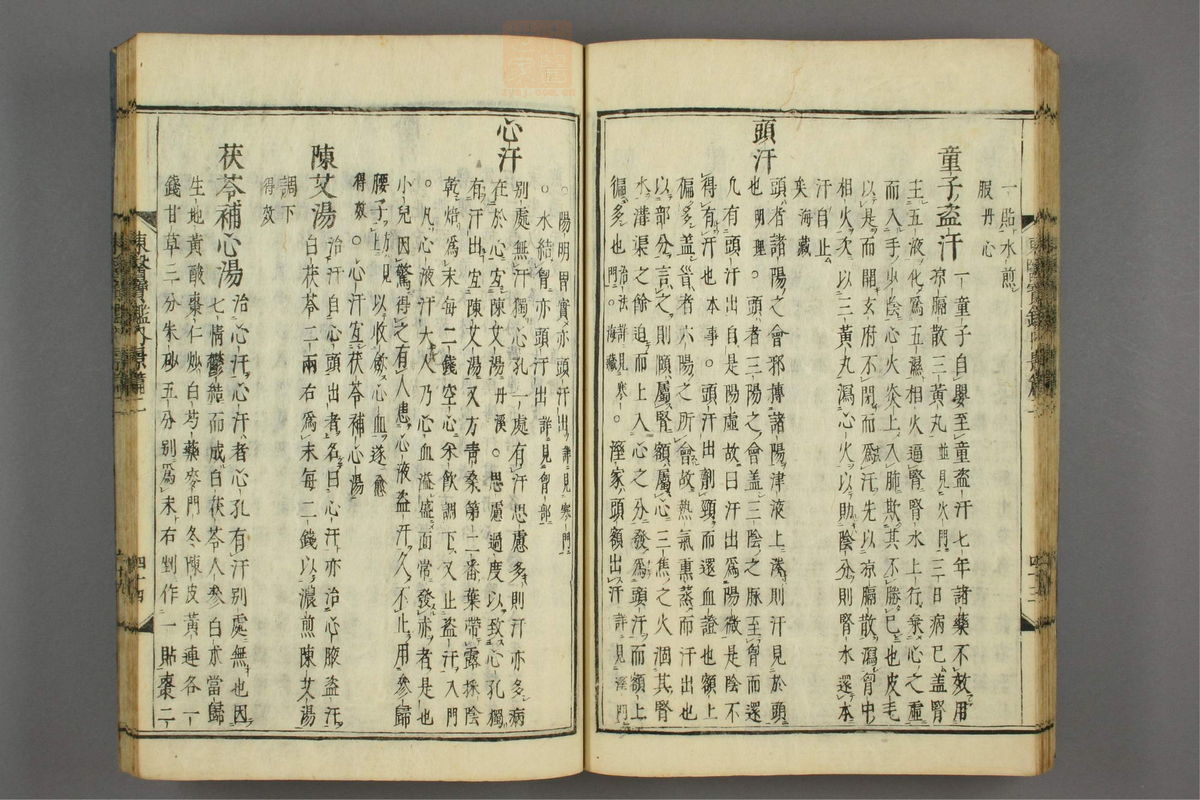 一貼水煎
服丹心
童子盜汗 一童子自嬰至童盜汗七年諸藥不效用
凉膈散三黃丸並見火門三日病已盖腎
主五液化爲五濕相火逼腎腎水上行乘心之虛
而入手少陰心火炎上入肺欺其不勝已也皮毛
以是而開玄府不閉而爲汗先以凉膈散瀉胃中
相火次以三黃丸瀉心火以助陰分則腎水還本
汗自止
矣海藏
頭汗
頭者諸陽之會邪搏諸陽津液上湊則汗見於頭
也明理。頭者三陽之會盖三陰之脉至胷而還
凡有頭汗出自是陽虛故曰汗出爲陽微是陰不
得有汗也本事。頭汗出劑頸而還血證也額上
徧多盖首者六陽之所會故熱氣熏蒸而汗出也
以部分言之則頤屬腎額屬心三焦之火涸其腎
水溝渠之餘迫而上入心之分發爲頭汗而額上
徧多也治法詳見寒門海藏。溼家頭額出汗詳見溼門
。陽明胃實亦頭汗出詳見寒門
。水結胷亦頭汗出詳見胷部
心汗
別處無汗獨心孔一處有汗思慮多則汗亦多病
在於心宜陳艾湯丹溪。思慮過度以致心孔獨
有汗出宜陳艾湯又方靑桑第二番葉帶露採陰
乾焙爲末每二錢空心米飮調下又止盜汗入門
。凡心液汗大人乃心血溢盛面常發赤者是也
小兒因驚得之有人患心液盜汗久不止用參歸
腰子方見上以收斂心血遂愈
得效。心汗宜茯苓補心湯
陳艾湯 治汗自心頭出者名曰心汗亦治心腋盜汗
白茯苓二兩右爲末每二錢以濃煎陳艾湯
調下
得效
茯苓補心湯 治心汗心汗者心孔有汗別處無也因
七情鬱結而成白茯苓人參白朮當歸
生地黃酸棗仁炒白芍藥麥門冬陳皮黃連各一
錢甘草三分朱砂五分別爲末右剉作一貼棗二